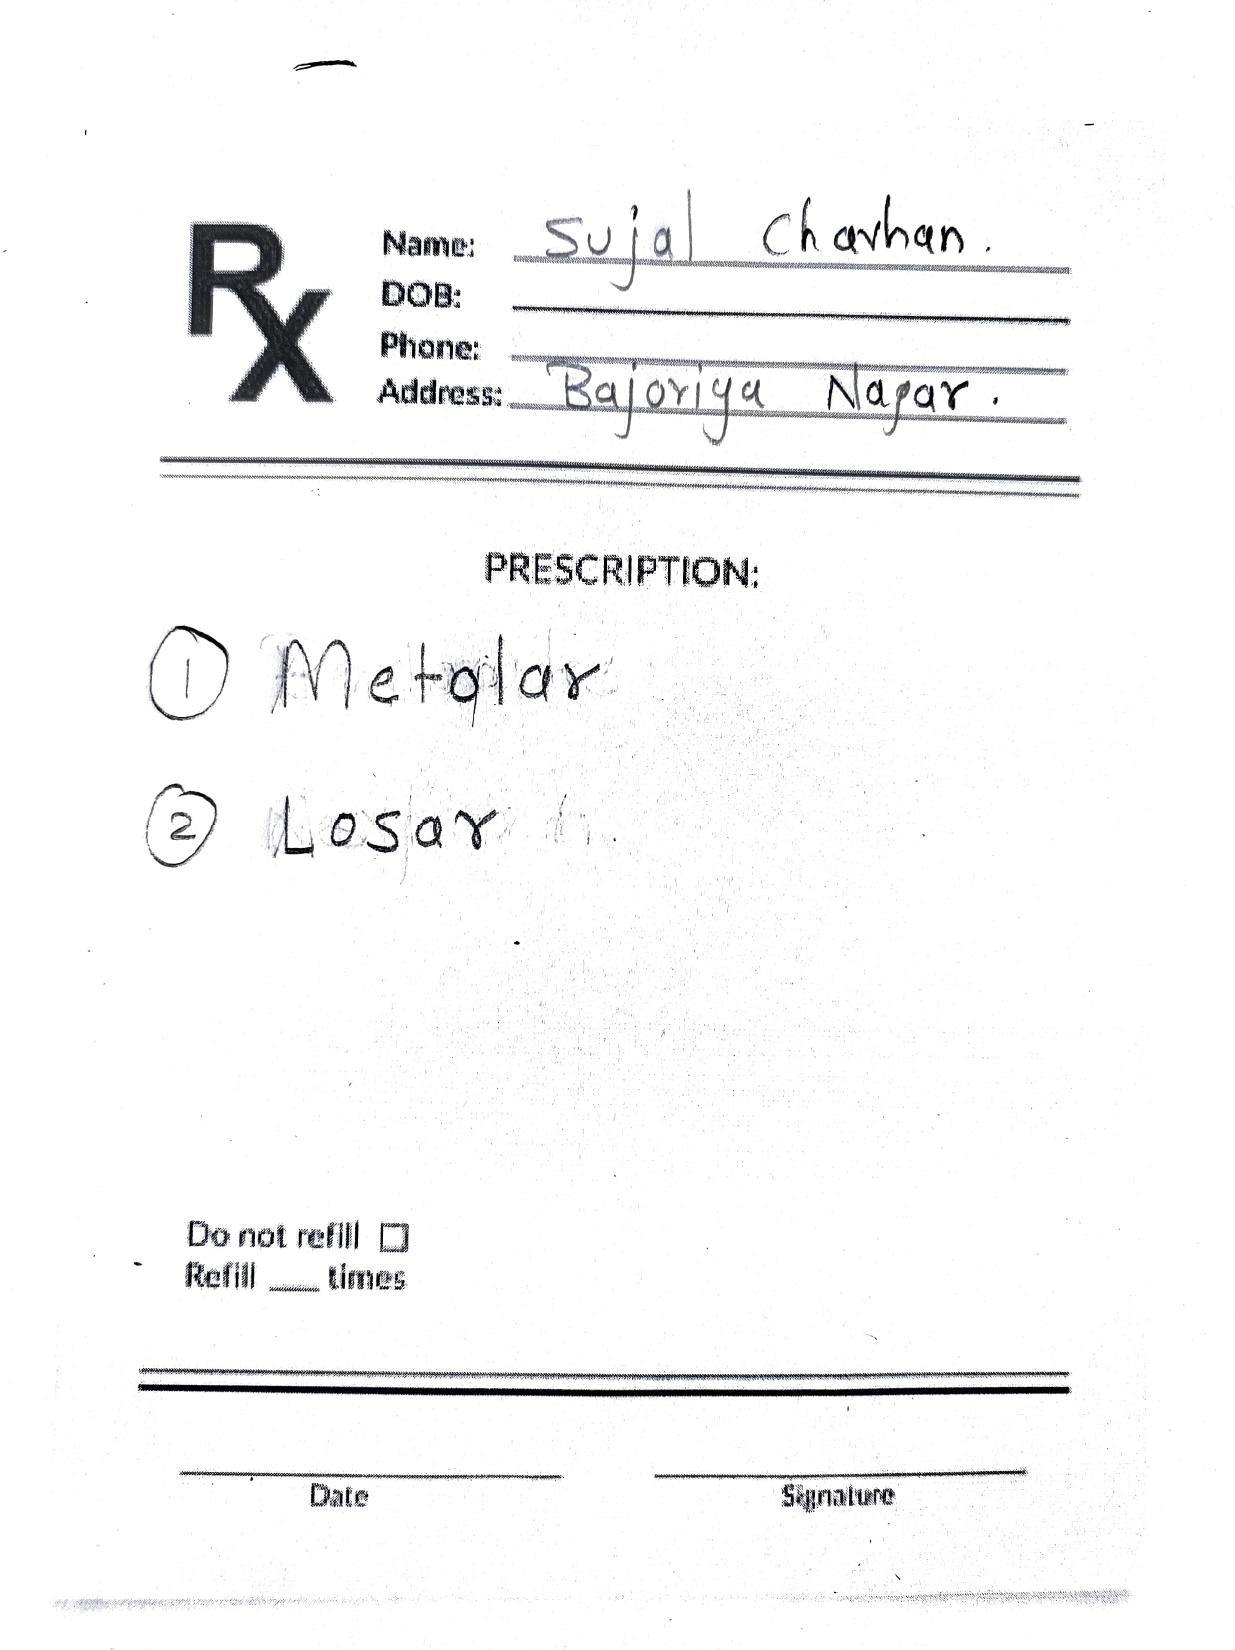 Rx
Name: Sujal Chavhan.
DOB:
Phone:
Address: Bajoriya Nagar.
PRESCRIPTION:
1 Metolar
2 Losar
Do not refill ☐
Refill ___ times
Date Signature